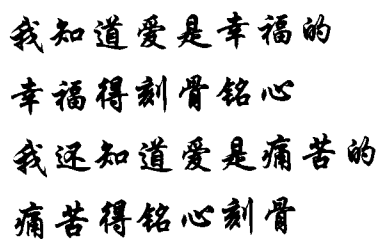 我知道爱是幸福的
幸福得刻骨铭心
我还知道爱是痛苦的
痛苦得铭心刻骨